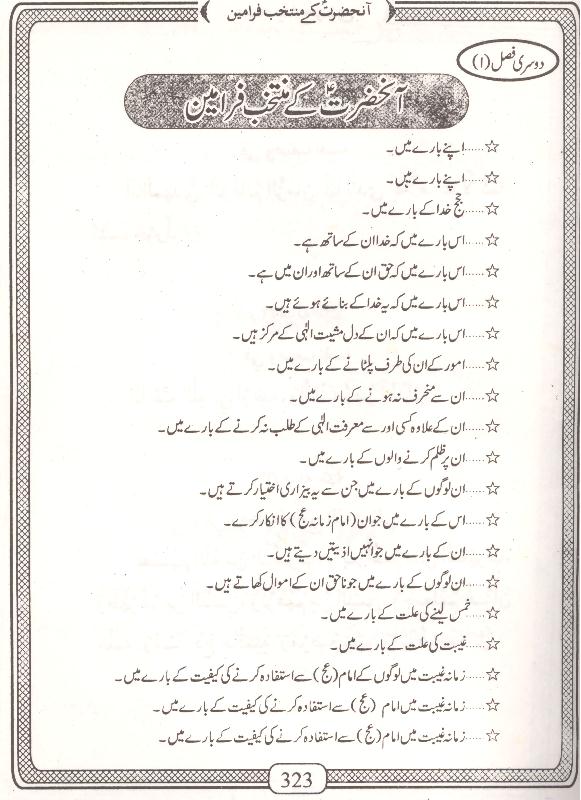 آنحضرتؐ کے منتخب فرامین
دوسری فصل (۱)
آنحضرتؑ کے منتخب فرامین
☆......اپنے بارے میں۔
☆......اپنے بارے میں۔
☆......حجج خدا کے بارے میں۔
☆......اس بارے میں کہ خدا ان کے ساتھ ہے۔
☆......اس بارے میں کہ حق ان کے ساتھ اور ان میں ہے۔
☆......اس بارے میں کہ یہ خدا کے بنائے ہوئے ہیں۔
☆......اس بارے میں کہ ان کے دل مشیت الٰہی کے مرکز ہیں۔
☆......امور کے ان کی طرف پلٹانے کے بارے میں۔
☆......ان سے منحرف نہ ہونے کے بارے میں۔
☆......ان کے علاوہ کسی اور سے معرفت الٰہی کے طلب نہ کرنے کے بارے میں۔
☆......ان پر ظلم کرنے والوں کے بارے میں۔
☆......ان لوگوں کے بارے میں جن سے یہ بیزاری اختیار کرتے ہیں۔
☆......اس کے بارے میں جو ان (امام زمانہ عج) کا انکار کرے۔
☆......ان کے بارے میں جو انہیں اذیتیں دیتے ہیں۔
☆......ان لوگوں کے بارے میں جو ناحق ان کے اموال کھاتے ہیں۔
☆......خمس لینے کی علت کے بارے میں۔
☆......غیبت کی علت کے بارے میں۔
☆......زمانہ غیبت میں لوگوں کے امام (عج) سے استفادہ کرنے کی کیفیت کے بارے میں۔
☆......زمانہ غیبت میں امام (عج) سے استفادہ کرنے کی کیفیت کے بارے میں۔
☆......زمانہ غیبت میں امام (عج) سے استفادہ کرنے کی کیفیت کے بارے میں۔
323